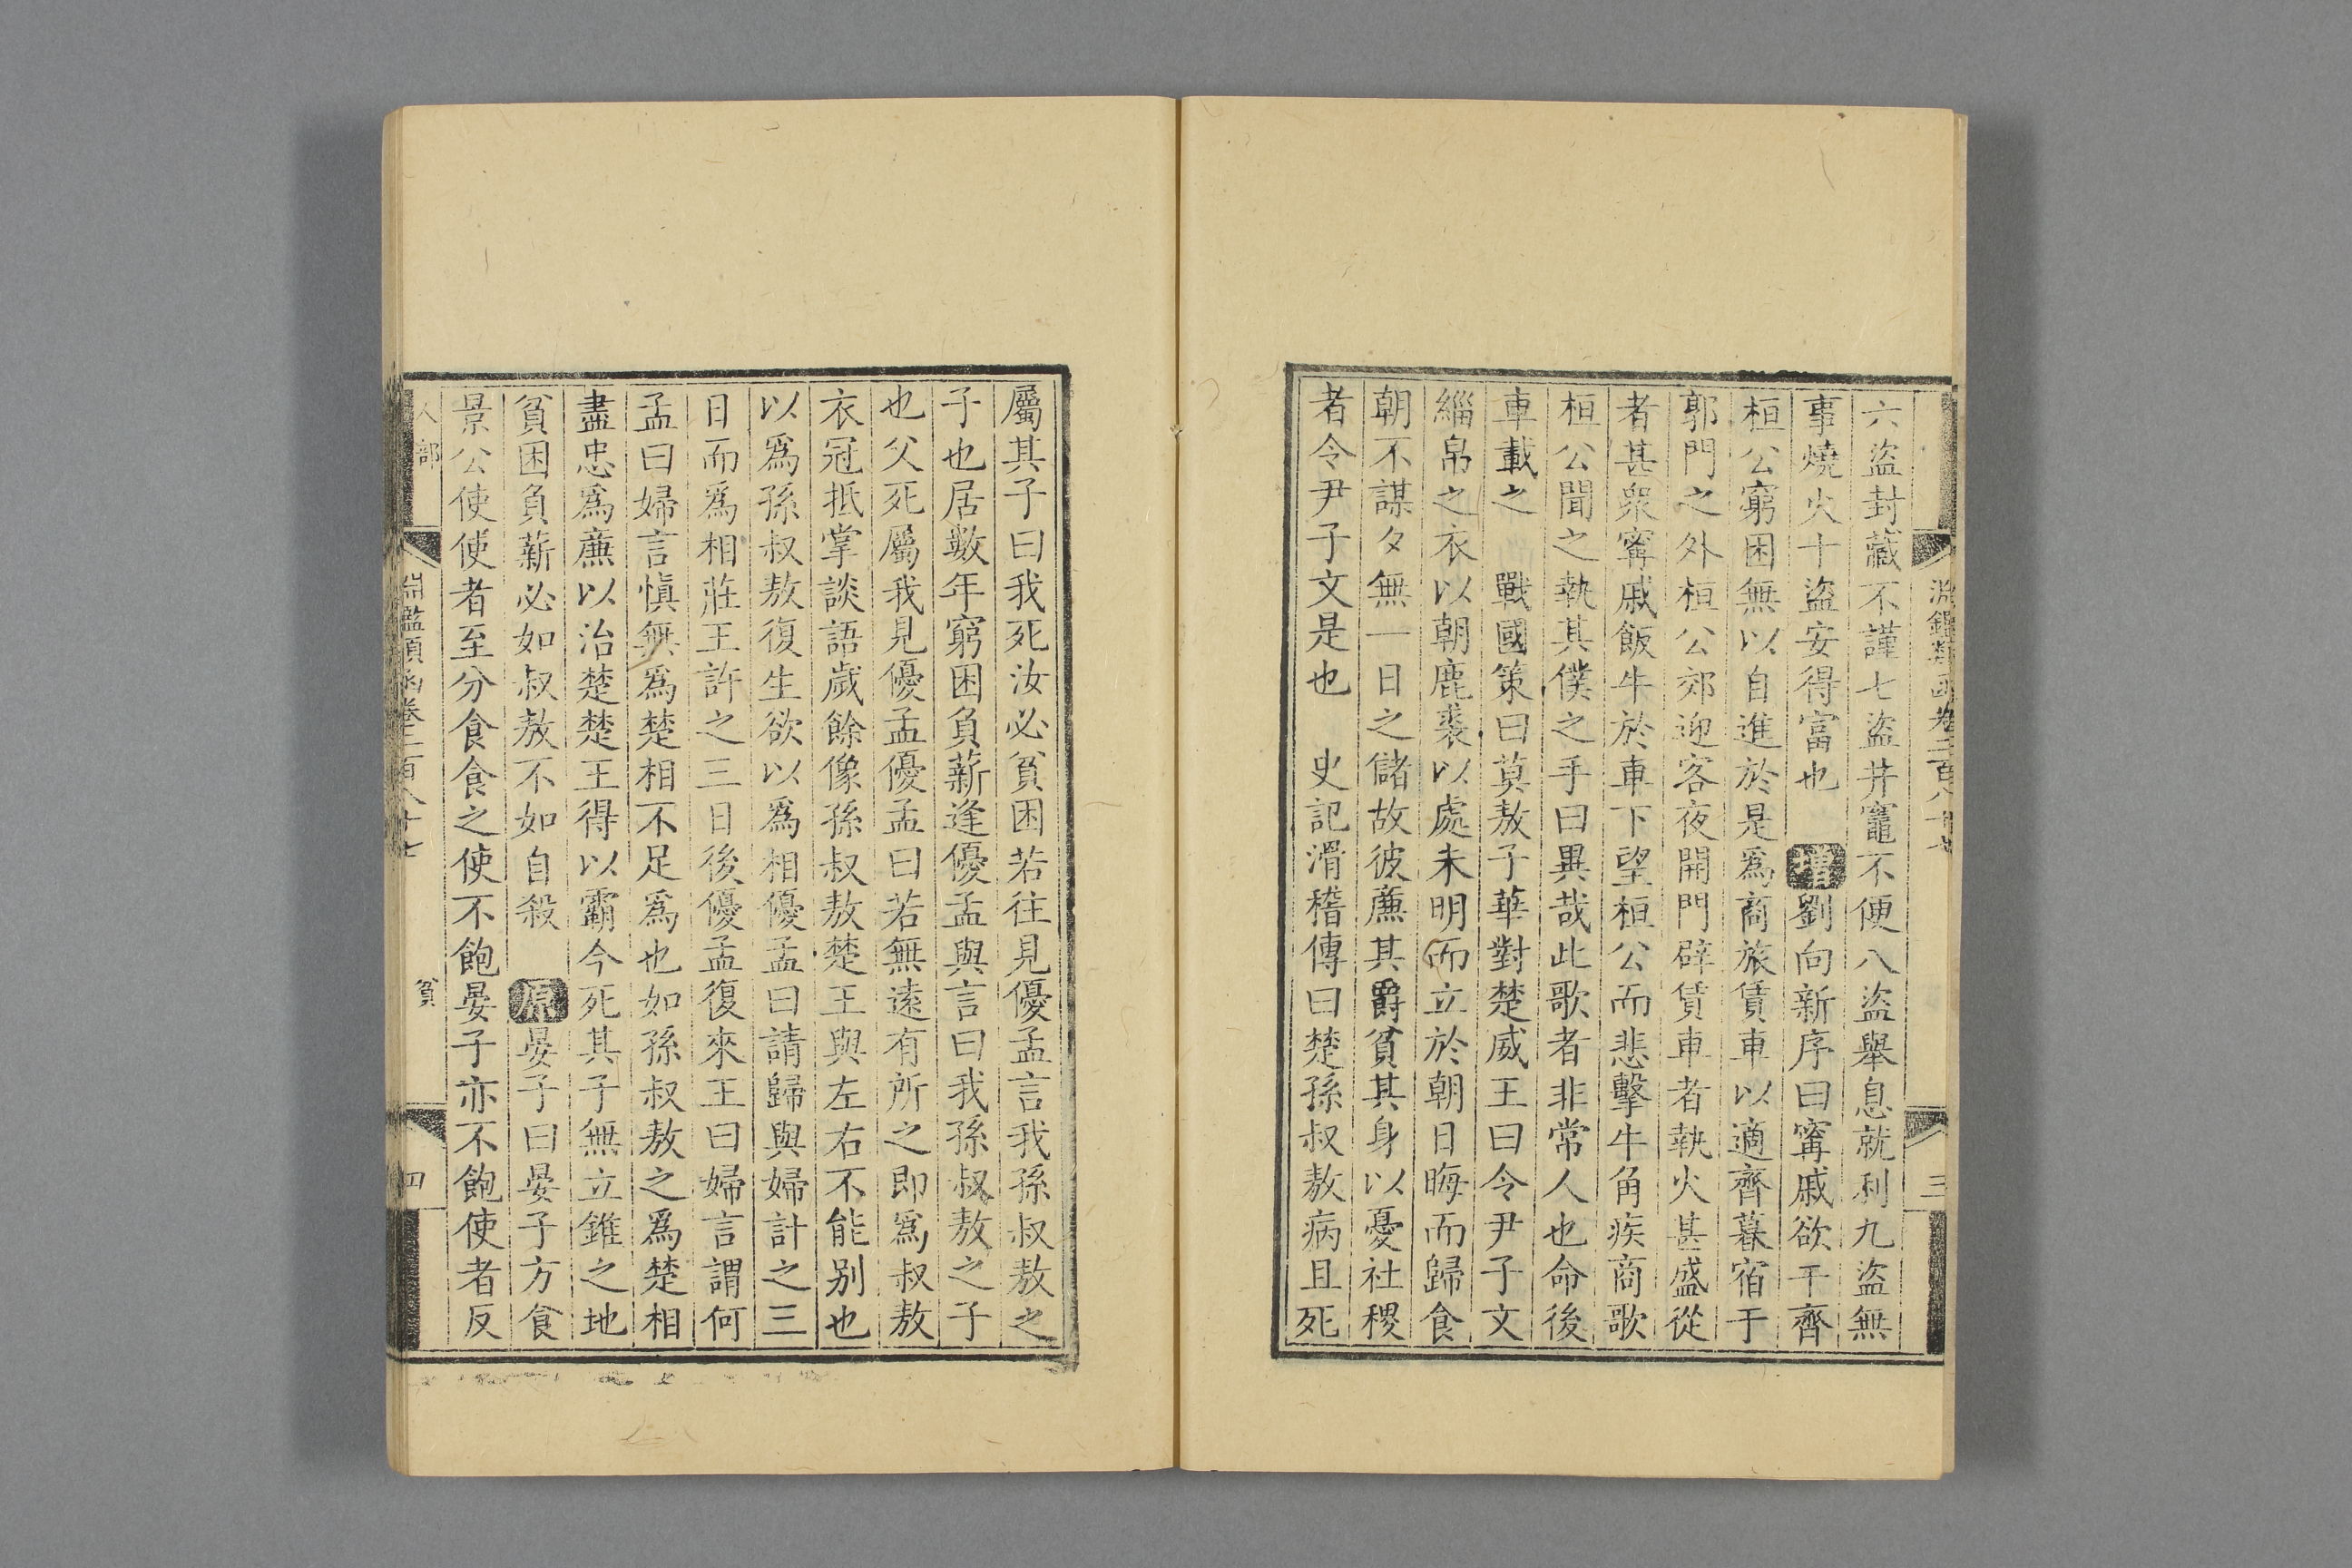 淵鑑類函卷二百八十七
三
六盜封藏不謹七盜井竈不便八盜舉息就利九盜無
事燒火十盜安得富也 增劉向新序曰甯戚欲干齊
桓公窮困無以自進於是爲商旅賃車以適齊暮宿于
郭門之外桓公郊迎客夜開門辟賃車者執火甚盛從
者甚衆甯戚飯牛於車下望桓公而悲擊牛角疾商歌
桓公聞之執其僕之手曰異哉此歌者非常人也命後
車載之 戰國策曰莫敖子華對楚威王曰令尹子文
緇帛之衣以朝鹿裘以處未明而立於朝日晦而歸食
朝不謀夕無一日之儲故彼廉其爵貧其身以憂社稷
者令尹子文是也 史記滑稽傳曰楚孫叔敖病且死
屬其子曰我死汝必貧困若往見優孟言我孫叔敖之
子也居數年窮困負薪逢優孟與言曰我孫叔敖之子
也父死屬我見優孟優孟曰若無遠有所之即爲叔敖
衣冠抵掌談語歲餘像孫叔敖楚王與左右不能别也
以爲孫叔敖復生欲以爲相優孟曰請歸與婦計之三
日而爲相莊王許之三日後優孟復來王曰婦言謂何
孟曰婦言愼無爲楚相不足爲也如孫叔敖之爲楚相
盡忠爲廉以治楚楚王得以霸今死其子無立錐之地
貧困負薪必如叔敖不如自殺 原晏子曰晏子方食
景公使使者至分食食之使不飽晏子亦不飽使者反
人部
淵鑑類函卷二百八十七
貧
四